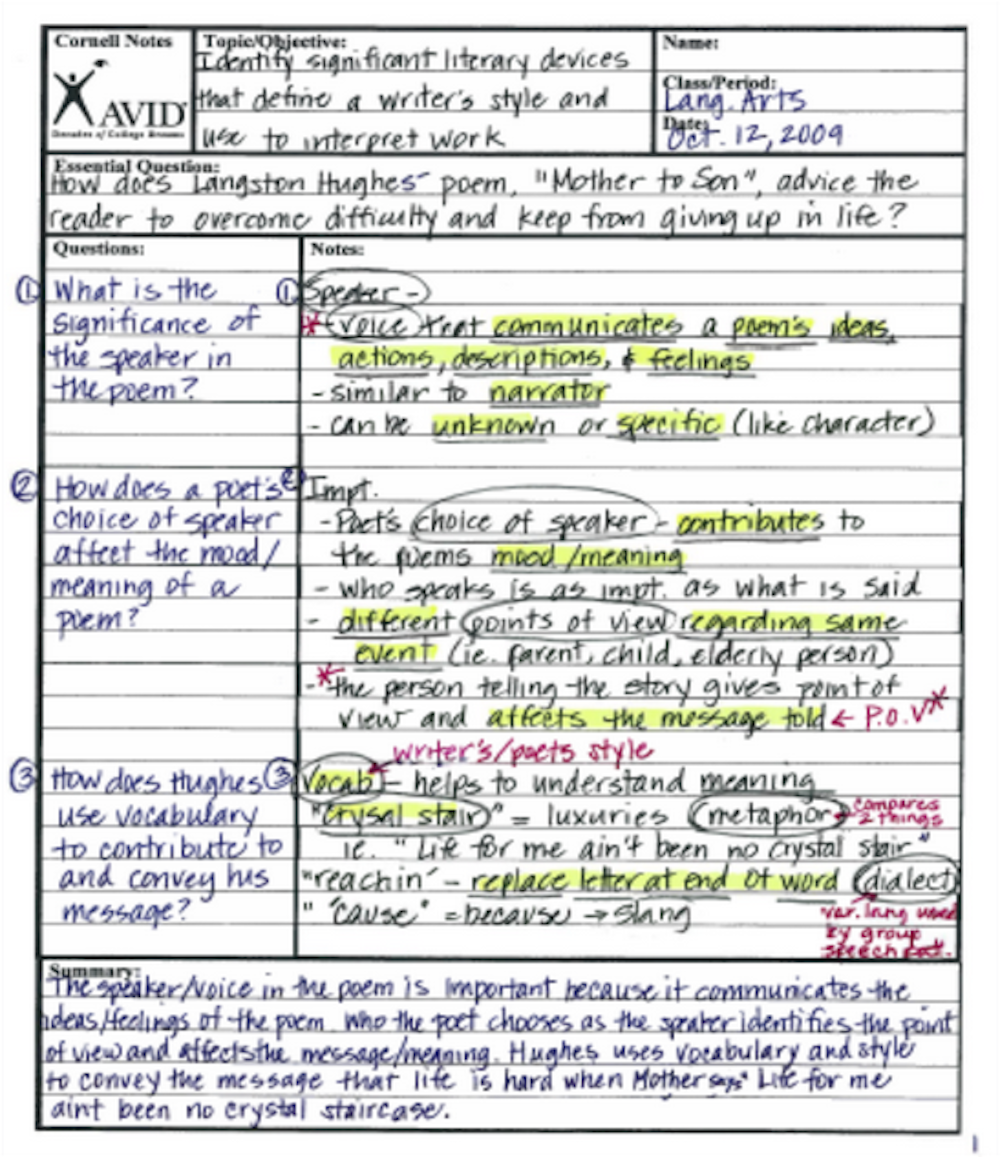 Cornell Notes
AVID
Decades of College Dreams
Topic/Objective:
Identify significant literary devices
that define a writer's style and
use to interpret work
Name:
Class/Period:
Lang. Arts
Date:
Oct. 12, 2009
Essential Question:
How does Langston Hughes' poem, "Mother to Son", advice the
reader to overcome difficulty and keep from giving up in life?
Questions:
① What is the
significance of
the speaker in
the poem?
② How does a poet's
choice of speaker
affect the mood/
meaning of a
poem?
③ How does Hughes
use vocabulary
to contribute to
and convey his
message?
Notes:
① Speaker -
* - voice that communicates a poem's ideas,
actions, descriptions, & feelings
- similar to narrator
- can be unknown or specific (like character)
② Impt.
- Poet's choice of speaker - contributes to
the poems mood/meaning
- who speaks is as impt. as what is said
- different points of view regarding same
event (ie. parent, child, elderly person)
- *the person telling the story gives point of
view and affects the message told ← P.O.V*
writer's/poets style
③ Vocab - helps to understand meaning
"Crysal stair" = luxuries (metaphor) → compares
2 things
ie. "Life for me ain't been no crystal stair"
"reachin' - replace letter at end of word (dialect)
" 'cause" = because → slang
var. lang used
by group
speech pat.
Summary:
The speaker/voice in the poem is important because it communicates the
ideas/feelings of the poem. Who the poet chooses as the speaker identifies the point
of view and affects the message/meaning. Hughes uses vocabulary and style
to convey the message that life is hard when Mother says "Life for me
aint been no crystal staircase.
1